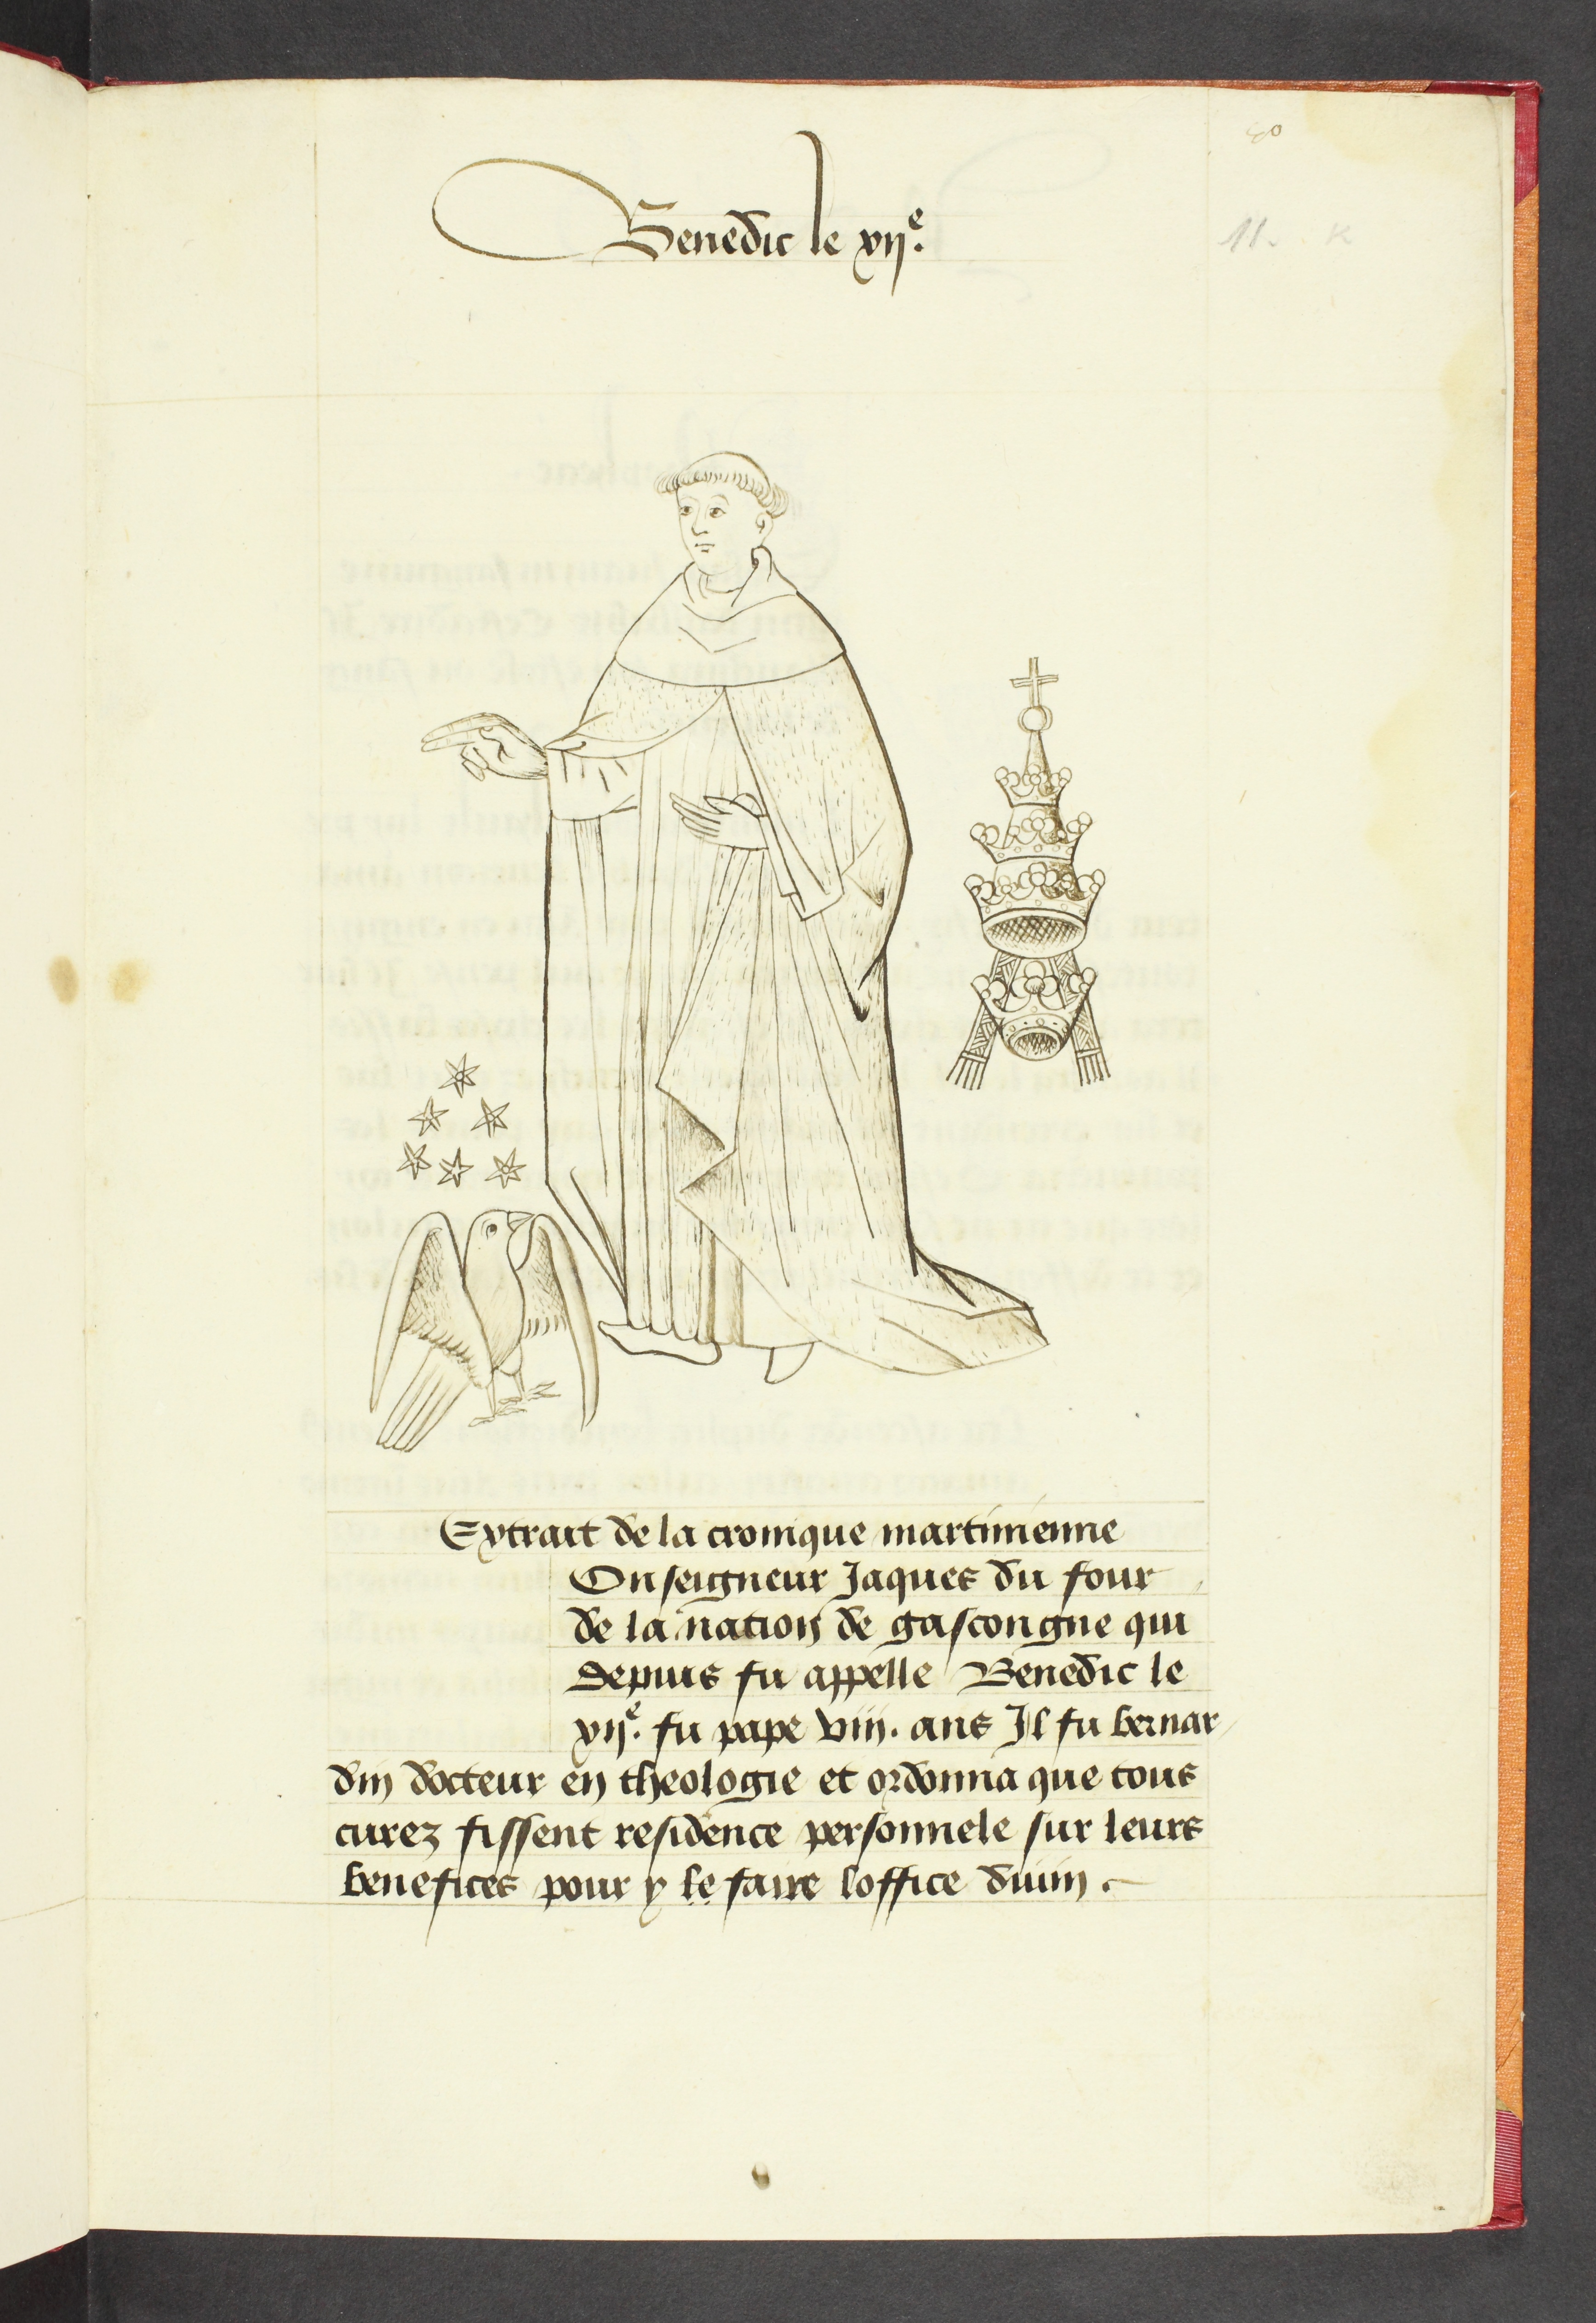 80
11. K
Benedic le xije.
Extrait de la cronique martinienne
Onseigneur Jaques du four
de la nation de gascongne qui
depuis fu appelle Benedic le
xije. fu pape viij. ans Il fu bernar
din docteur en theologie et ordonna que tous
curez fissent residence personnele sur leurs
benefices pour y le faire loffice diuin .